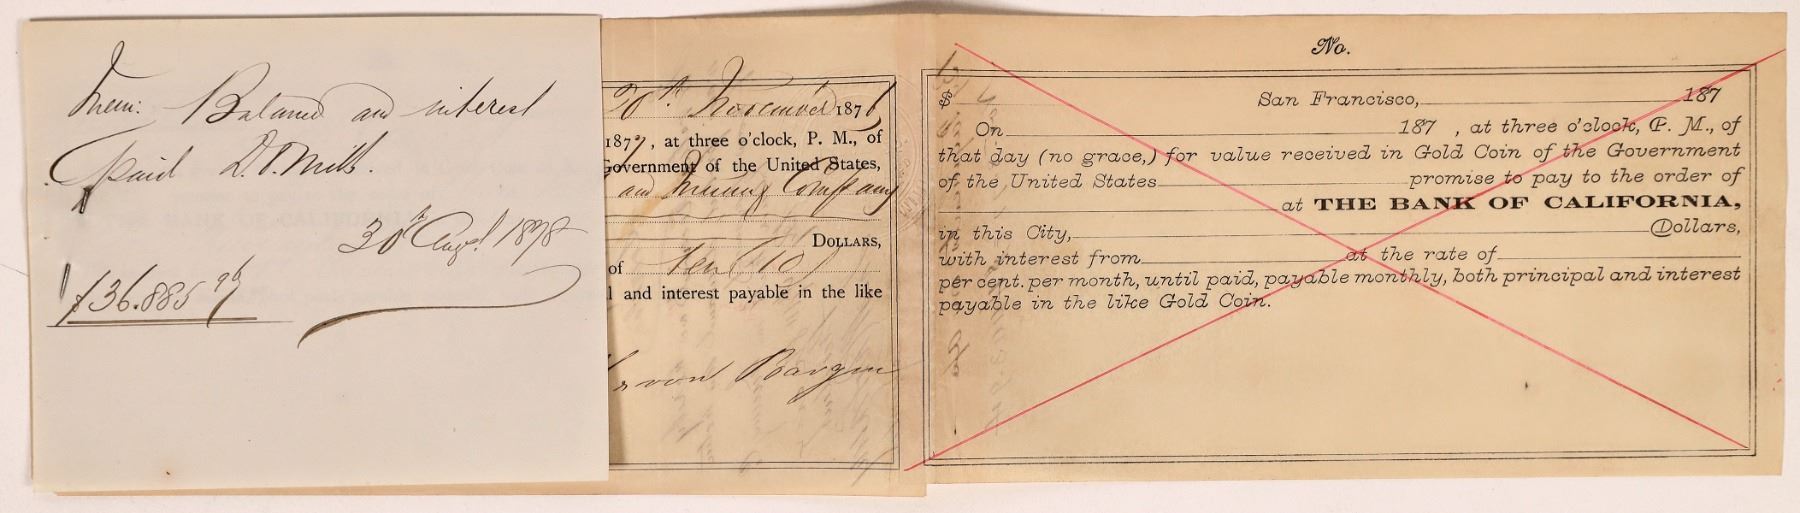 Mem: Balance and interest
paid D.O. Mills.
30th Augt 1878
$36.885 96
20th November 1876
1877, at three o'clock, P. M., of
Government of the United States,
and Mining Company
DOLLARS,
of Ten (10)
l and interest payable in the like
No.
$ San Francisco, 187
On 187 , at three o'clock, P. M., of
that day (no grace,) for value received in Gold Coin of the Government
of the United States promise to pay to the order of
at THE BANK OF CALIFORNIA,
in this City, Dollars,
with interest from at the rate of
per cent. per month, until paid, payable monthly, both principal and interest
payable in the like Gold Coin.